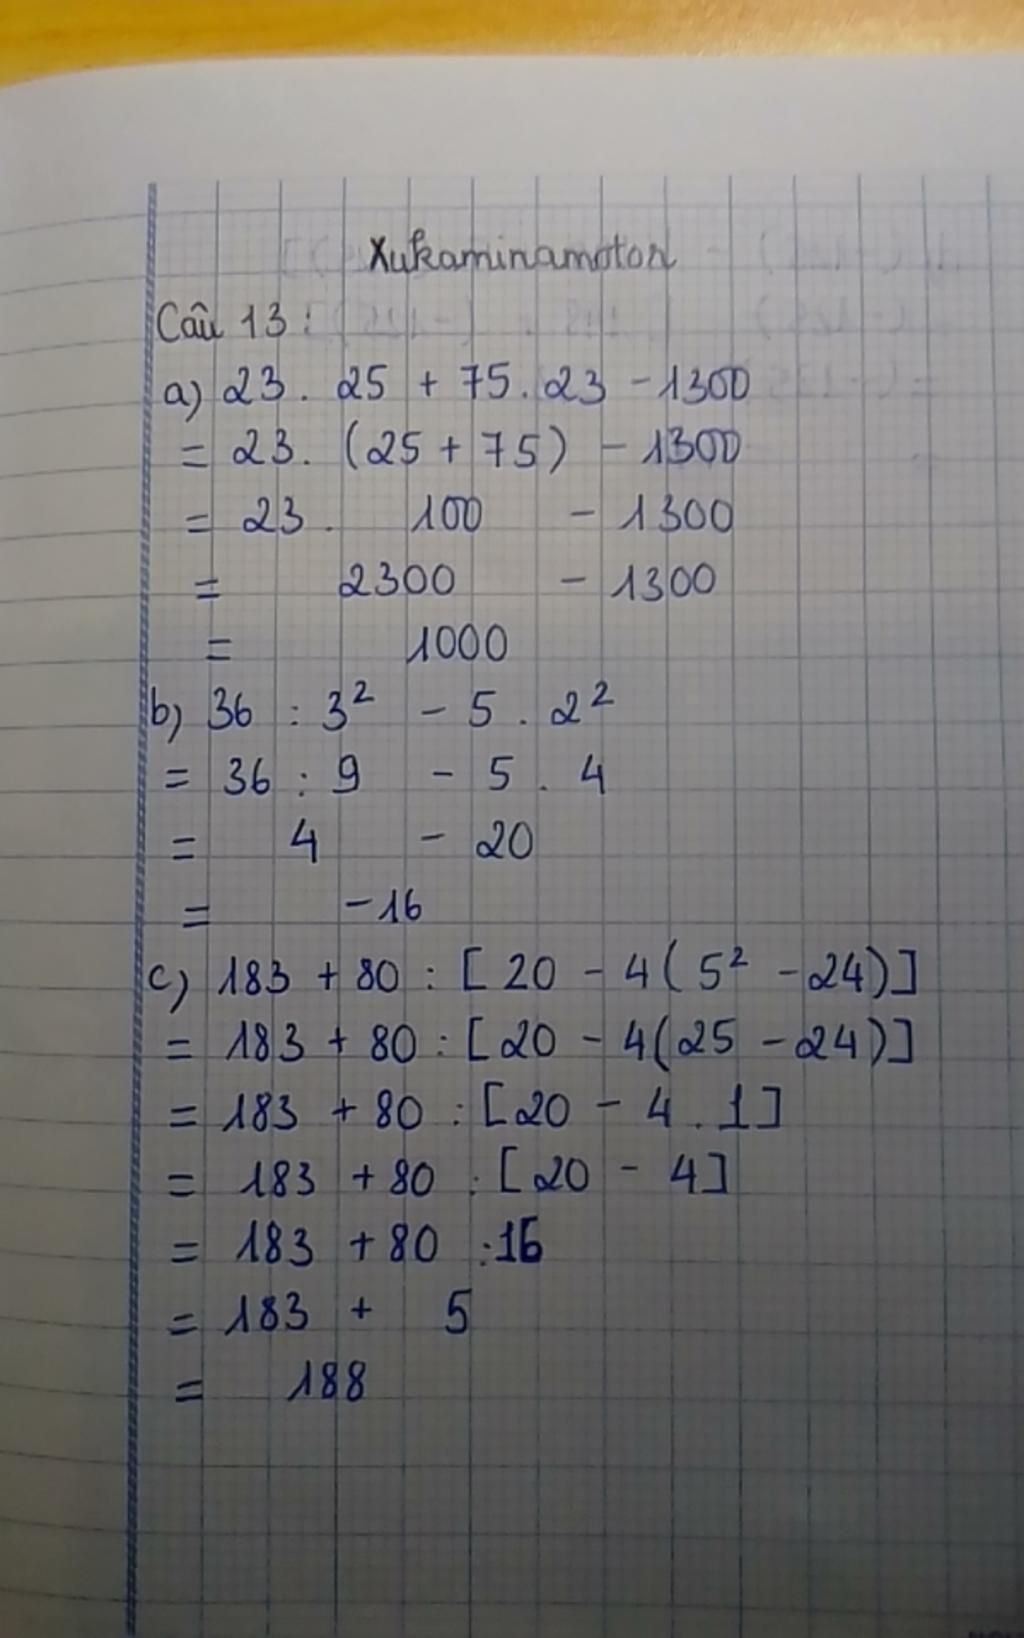 Xukaminamoton
Câu 13:
a) 23. 25 + 75. 23 - 1300
= 23. (25 + 75) - 1300
= 23. 100 - 1300
= 2300 - 1300
= 1000
b) 36 : 3² - 5 . 2²
= 36 : 9 - 5 . 4
= 4 - 20
= -16
c) 183 + 80 : [20 - 4(5² - 24)]
= 183 + 80 : [20 - 4(25 - 24)]
= 183 + 80 : [20 - 4 . 1]
= 183 + 80 : [20 - 4]
= 183 + 80 : 16
= 183 + 5
= 188